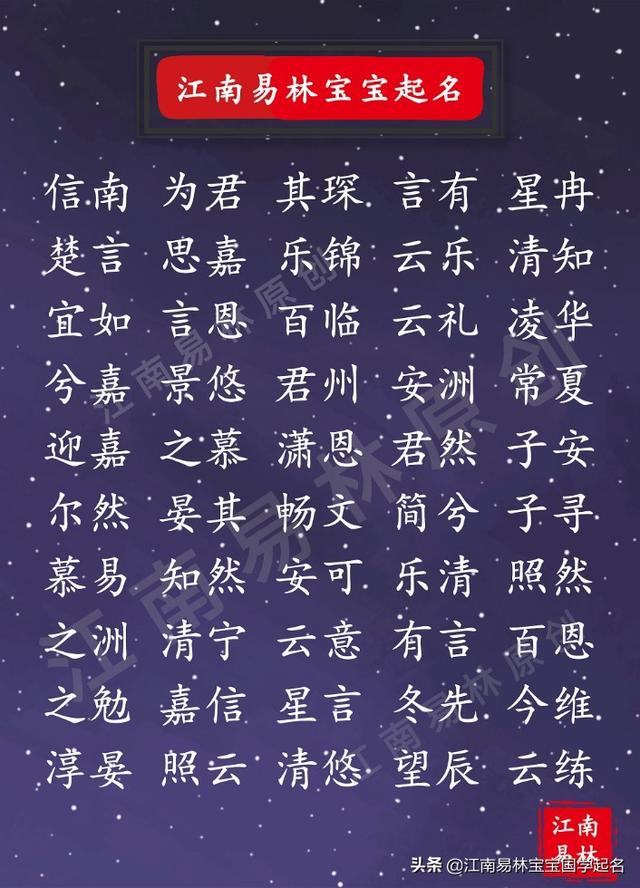 江南易林宝宝起名
信南 为君 其琛 言有 星冉
楚言 思嘉 乐锦 云乐 清知
宜如 言恩 百临 云礼 凌华
兮嘉 景悠 君州 安洲 常夏
迎嘉 之慕 潇恩 君然 子安
尔然 晏其 畅文 简兮 子寻
慕易 知然 安可 乐清 照然
之洲 清宁 云意 有言 百恩
之勉 嘉信 星言 冬先 今维
淳晏 照云 清悠 望辰 云练
江南易林原创
江南易林原创
江南易林原创
江南
易林
头条 @江南易林宝宝国学起名